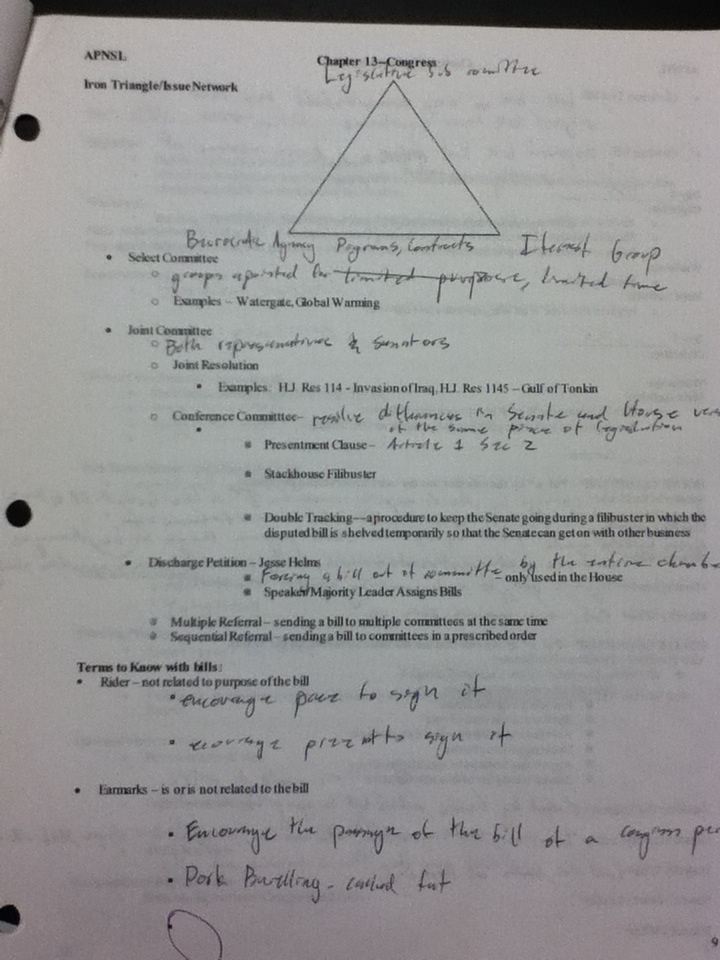 APNSL
Chapter 13-Congress
Legislative sub comittee
Iron Triangle/Issue Network
Agency Programs, Contracts Interest Group
• Select Committee
○ groups apointed for limited purpose, limited time
○ Examples – Watergate, Global Warming
• Joint Committee
○ Both representatives & senators
○ Joint Resolution
▪ Examples: H.J. Res 114 - Invasion of Iraq, H.J. Res 1145 – Gulf of Tonkin
○ Conference Committtee– resolve differences in Senate and House
of the same piece of legislation
Presentment Clause – Article 1 Sec 2
Stackhouse Filibuster
Double Tracking—a procedure to keep the Senate going during a filibuster in which the
disputed bill is shelved temporarily so that the Senate can get on with other business
• Discharge Petition – Jesse Helms
Forcing a bill out of committe by the entire – only used in the House
Speaker/Majority Leader Assigns Bills
Multiple Referral – sending a bill to multiple committees at the same time
Sequential Referral – sending a bill to committees in a prescribed order
Terms to Know with bills:
• Rider – not related to purpose of the bill
• encourage to sign it
• sign it
• Earmarks – is or is not related to the bill
• Encourage the passage of the bill of a congress
• Pork
9